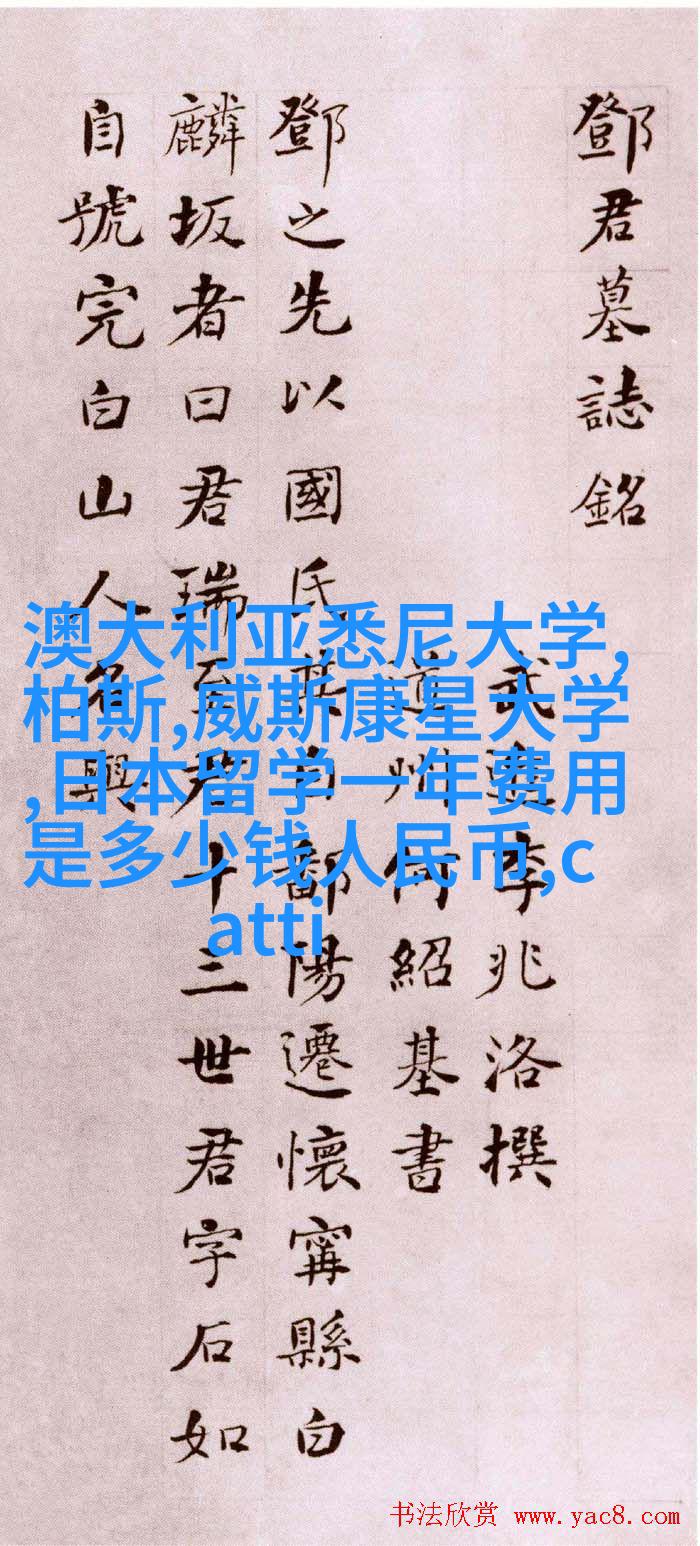 鄧君墓誌銘
武進李兆洛撰
道州何紹基書
鄧之先以國氏鄱陽遷懷甯縣白
麟坂者曰君瑞至君十三世君字石如
自號完白山人名與
澳大利亚悉尼大学,
柏斯,威斯康星大学
,日本留学一年费用
是多少钱人民币,c
atti
书法欣赏 www.yac8.com